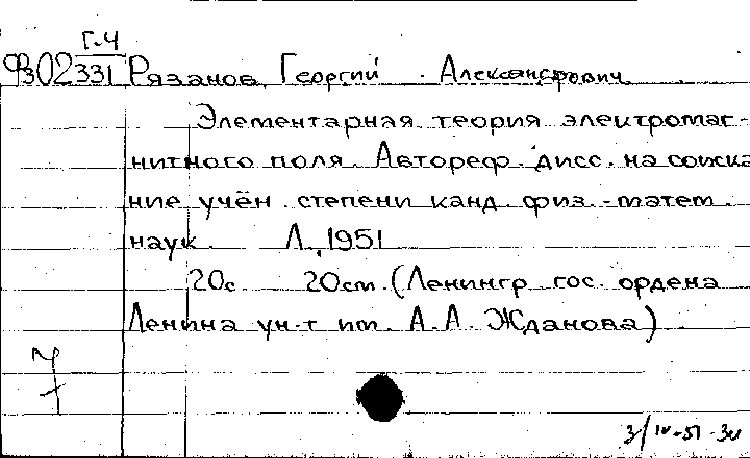 Г-4
Рязанов Георгий Александрович
331
Элементарная теория электромаг-
нитного поля. Автореф. дисс. на соиска
ние учён. степени канд. физ.-матем.
наук. Л., 1951
20с. 20см. (Ленингр. гос. ордена
Ленина ун-т им. А. А. Жданова)